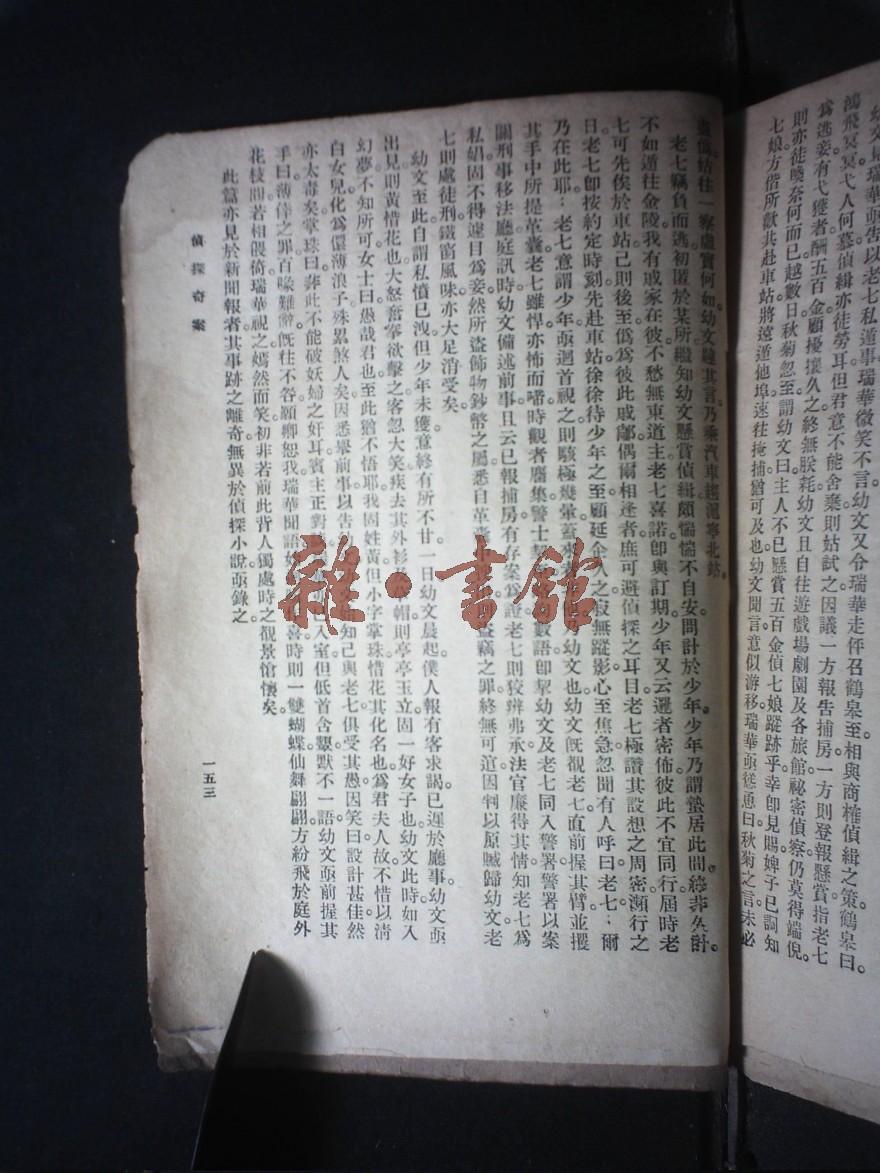 幼文見瑞華亟告以老七私遁事瑞華微笑不言幼文又令瑞華走伻召鶴皋至相與商榷偵緝之策鶴皋曰。
鴻飛冥冥弋人何慕偵緝亦徒勞耳但君意不能舍棄則姑試之因議一方報告捕房一方則登報懸賞指老七
爲逃妾有弋獲者酬五百金顧擾攘久之終無朕耗幼文且自往遊戲場劇園及各旅館祕密偵察仍莫得端倪。
則亦徒喚奈何而已越數日秋菊忽至謂幼文曰主人不已懸賞五百金偵七娘蹤跡乎幸卽見賜婢子已詗知
七娘方偕所歡共赴車站將遠遁他埠速往掩捕猶可及也幼文聞言意似游移瑞華亟慫恿曰秋菊之言未必
盡僞姑往一察虛實何如幼文韙其言乃乘汽車趨滬寧北站。
老七竊負而逃初匿於某所繼知幼文懸賞偵緝頗惴惴不自安問計於少年少年乃謂蟄居此間終非久計。
不如遁往金陵我有戚家在彼不愁無東道主老七喜諾卽與訂期少年又云邏者密佈彼此不宜同行屆時老
七可先俟於車站己則後至僞爲彼此戚鄺偶爾相逢者庶可避偵探之耳目老七極讚其設想之周密瀕行之
日老七卽按約定時刻先赴車站徐徐待少年之至顧延企久之寂無蹤影心至焦急忽聞有人呼曰老七爾
乃在此耶老七意謂少年亟迴首視之則駭極幾暈蓋來者 幼文也幼文旣覩老七直前握其臂並攫
其手中所提革囊老七雖悍亦怖而嗜時觀者麕集警士 數語卽挈幼文及老七同入警署警署以案
關刑事移法廳庭訊時幼文備述前事且云已報捕房有存案爲證老七則狡辨弗承法官廉得其情知老七爲
私娼固不得遽目爲妾然所盜飾物鈔幣之屬悉自革囊 盜竊之罪終無可逭因判以原贓歸幼文老
七則處徒刑鐵窗風味亦大足消受矣
幼文至此自謂私憤已洩但少年未獲意終有所不甘一日幼文晨起僕人報有客求謁已遲於廳事幼文亟
出見則黃惜花也大怒奮拳欲擊之客忽大笑疾去其外衫 帽則亭亭玉立固一好女子也幼文此時如入
幻夢不知所可女士曰愚哉君也至此猶不悟耶我固姓黃但小字掌珠惜花其化名也爲君夫人故不惜以清
白女兒化爲儇薄浪子殊累煞人矣因悉舉前事以告 知己與老七俱受其愚因笑曰設計甚佳然
亦太毒矣掌珠曰非此不能破妖婦之奸耳賓主正對 已入室但低首含顰默不一語幼文亟前握其
手曰薄倖之罪百喙難辭旣往不咎願卿恕我瑞華聞語 喜時則一雙蝴蝶仙舞翩翩方紛飛於庭外
花枝間若相偎倚瑞華視之嫣然而笑初非若前此背人獨處時之覩景愴懷矣
此篇亦見於新聞報者其事跡之離奇無異於偵探小說亟錄之
偵探奇案
一五三
雜·書館